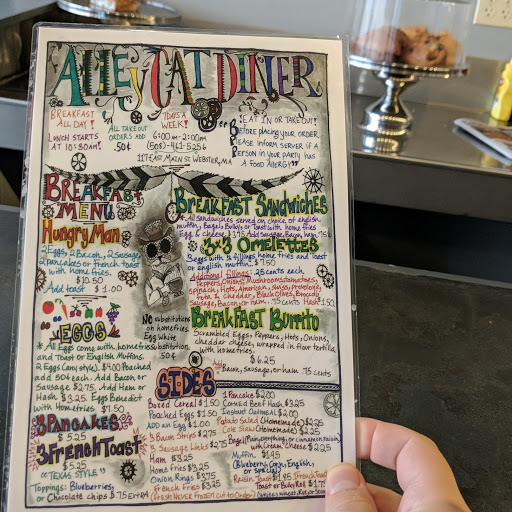 ALLEYCAT DINER
BREAKFAST ALL DAY!
LUNCH STARTS AT 10:30AM!
ALL TAKE OUT ORDERS ADD 50¢
7 DAYS A WEEK!
6:00am-2:00pm
(508)-461-5256
117 EAST MAIN ST. WEBSTER, MA
EAT IN OR TAKE OUT!
BEFORE PLACING YOUR ORDER
PLEASE INFORM SERVER IF A
PERSON IN YOUR PARTY HAS
A FOOD ALLERGY"
BREAKFAST
MENU
HUNGRY MAN
2 Eggs, 2 Bacon, 2 Sausage
2 pancakes or french toast
with home fries.
$10.50
Add toast $1.00
EGGS
* All Eggs come with homefries
and Toast or English Muffins.
2 Eggs (any style). $4.00 Poached
add 50¢ each. Add Bacon or
Sausage $2.75 Add Ham or
Hash $3.25 Eggs Benedict
with Homefries $7.50
3 PANCAKES
$5.25
3 FRENCH TOAST
$5.25
"TEXAS STYLE"
Toppings: Blueberries,
or Chocolate chips $.75 EXTRA
NO substitutions
on homefries
Egg White
substitution
50¢
BREAKFAST SANDWICHES
* All sandwiches served on choice of english
muffin, Bagel, Bulky, or Toast with home fries
Egg & cheese $3.75 Add Sausage, Bacon, ham
3x3 OMELETTES
3 eggs with 3 fillings home fries and Toast
or english muffin. $7.50
Additional fillings: .25 cents each
Peppers, Onions, Mushrooms, Tomatoes,
Spinach, Hots, American, Swiss, Provolone,
Feta & Cheddar, Black Olives, Broccoli
Sausage, Bacon, or ham .75 cents Hash 1.50
BREAKFAST BURRITO
Scrambled Eggs, Peppers, Hots, Onions,
cheddar cheese, wrapped in flour tortilla
with homefries.
$6.25
Add Bacon, Sausage, or ham .75 cents
SIDES
Boxed Cereal $1.50
Poached Eggs $1.50
ADD an Egg $1.00
3 Bacon Strips $2.75
3 Sausage Links $2.75
Ham $3.25
Home fries $3.25
Onion Rings $3.75
French Fries $3.25
Fresh NEVER Frozen! Cut to Order!
1 Pancake $2.00
Corned Beef Hash $3.25
Instant Oatmeal $2.00
Potato Salad (Homemade) $2.25
Cole Slaw (Homemade) $2.25
Bagel Plain, everything, or cinnamon raisin
with Cream Cheese $2.25
Muffin $1.95
(Blueberry, Corn, English,
or special)
Raisin Toast $1.95
Toast or Bulky Roll